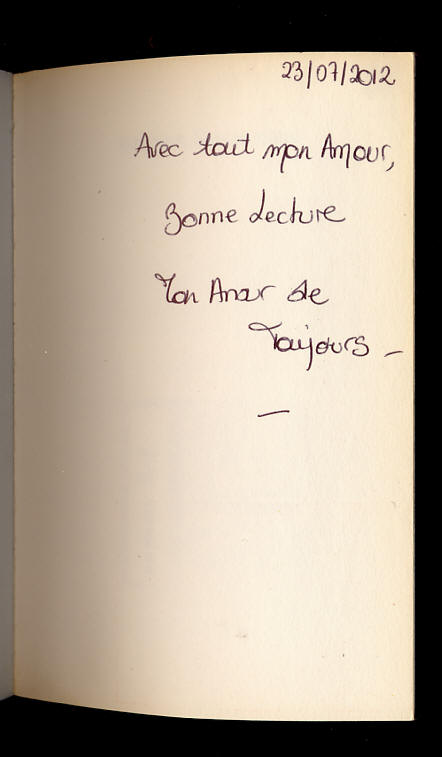 23/07/2012
Avec tout mon Amour,
Bonne Lecture
Ton Anar de
Toujours –
—